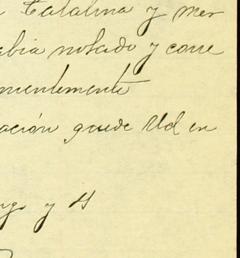 Catalina y mer
abia notado y corre
nientemente
ación quede Ud en
y